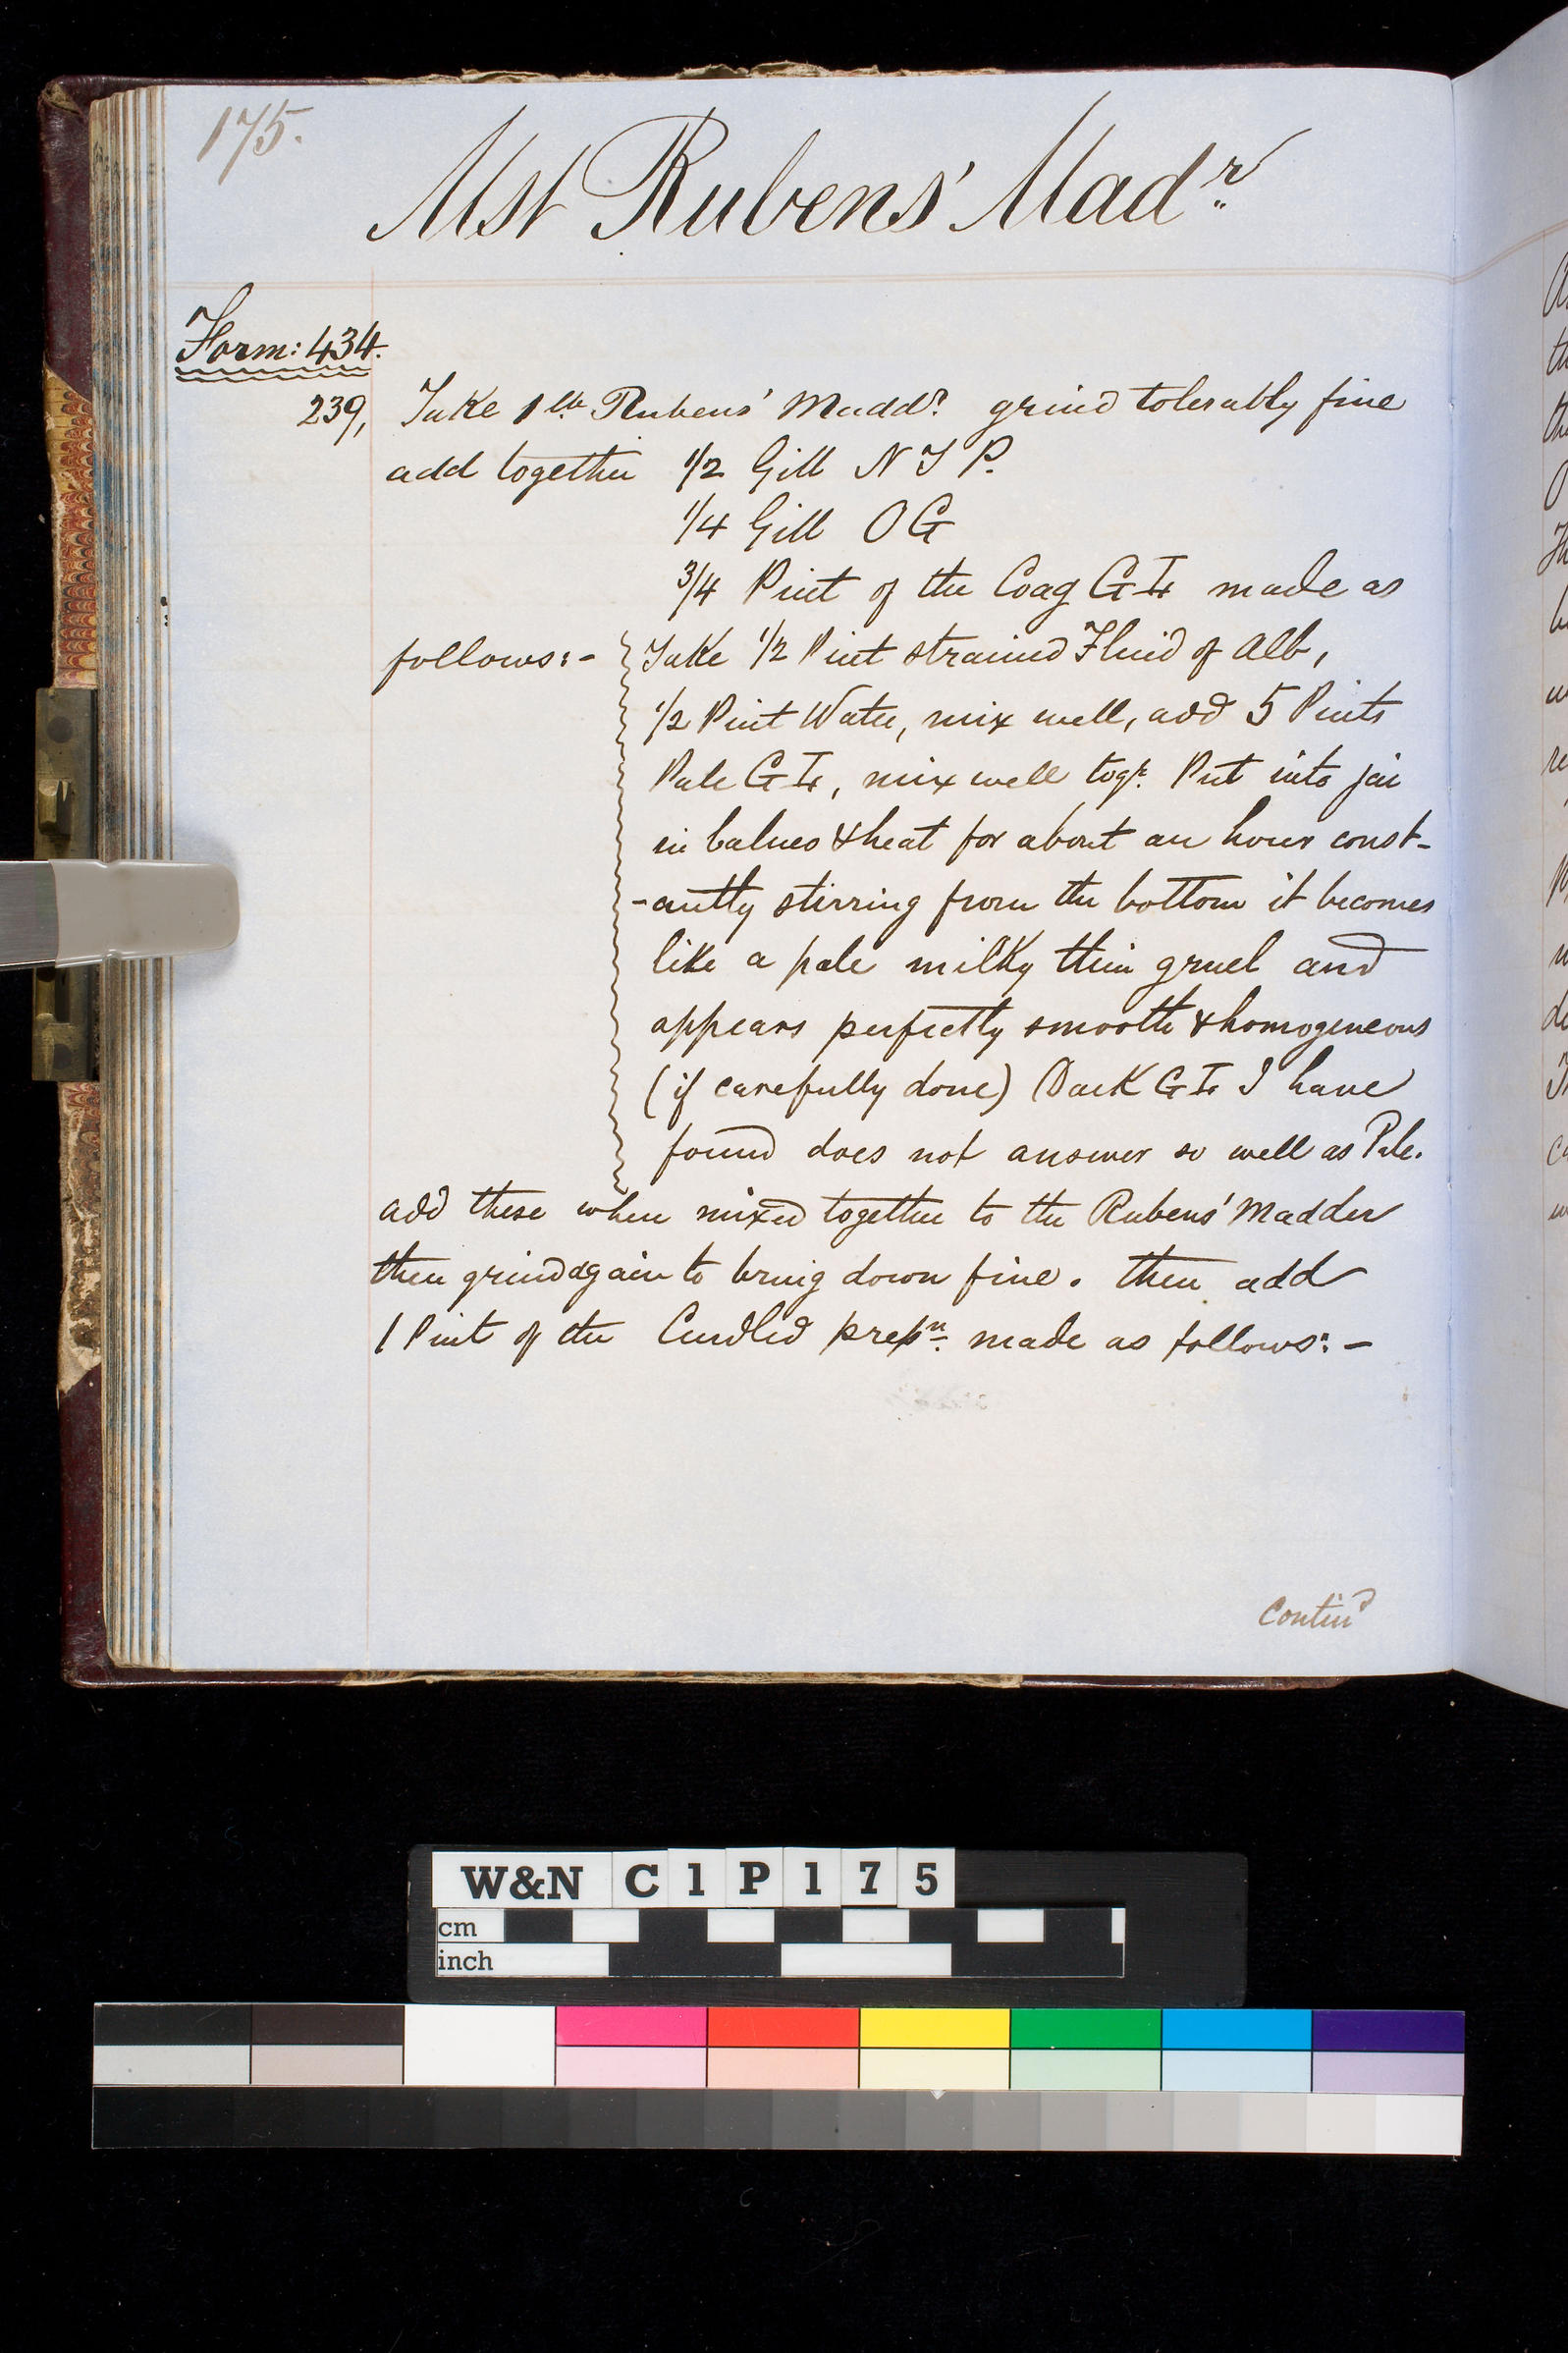 175.
Mst Rubens' Madr
Form: 434.
239, Take 1 lb Rubens' Maddr grind tolerably fine
add together 1/2 Gill N S P.
1/4 Gill O G
3/4 Pint of the Coag G made as
follows:- Take 1/2 Pint strained Fluid of Alb,
1/2 Pint Water, mix well, add 5 Pints
Pale G, mix well togr. Put into jar
in balneo & heat for about an hour const-
-antly stirring from the bottom it becomes
like a pale milky thin gruel and
appears perfectly smooth & homogeneous
(if carefully done) Dark G I have
found does not answer so well as Pale.
add these when mixed together to the Rubens' Madder
then grind again to bring down fine. then add
1 Pint of the Curdled prepn. made as follows:-
Contind
W&N C 1 P 1 7 5
cm
inch